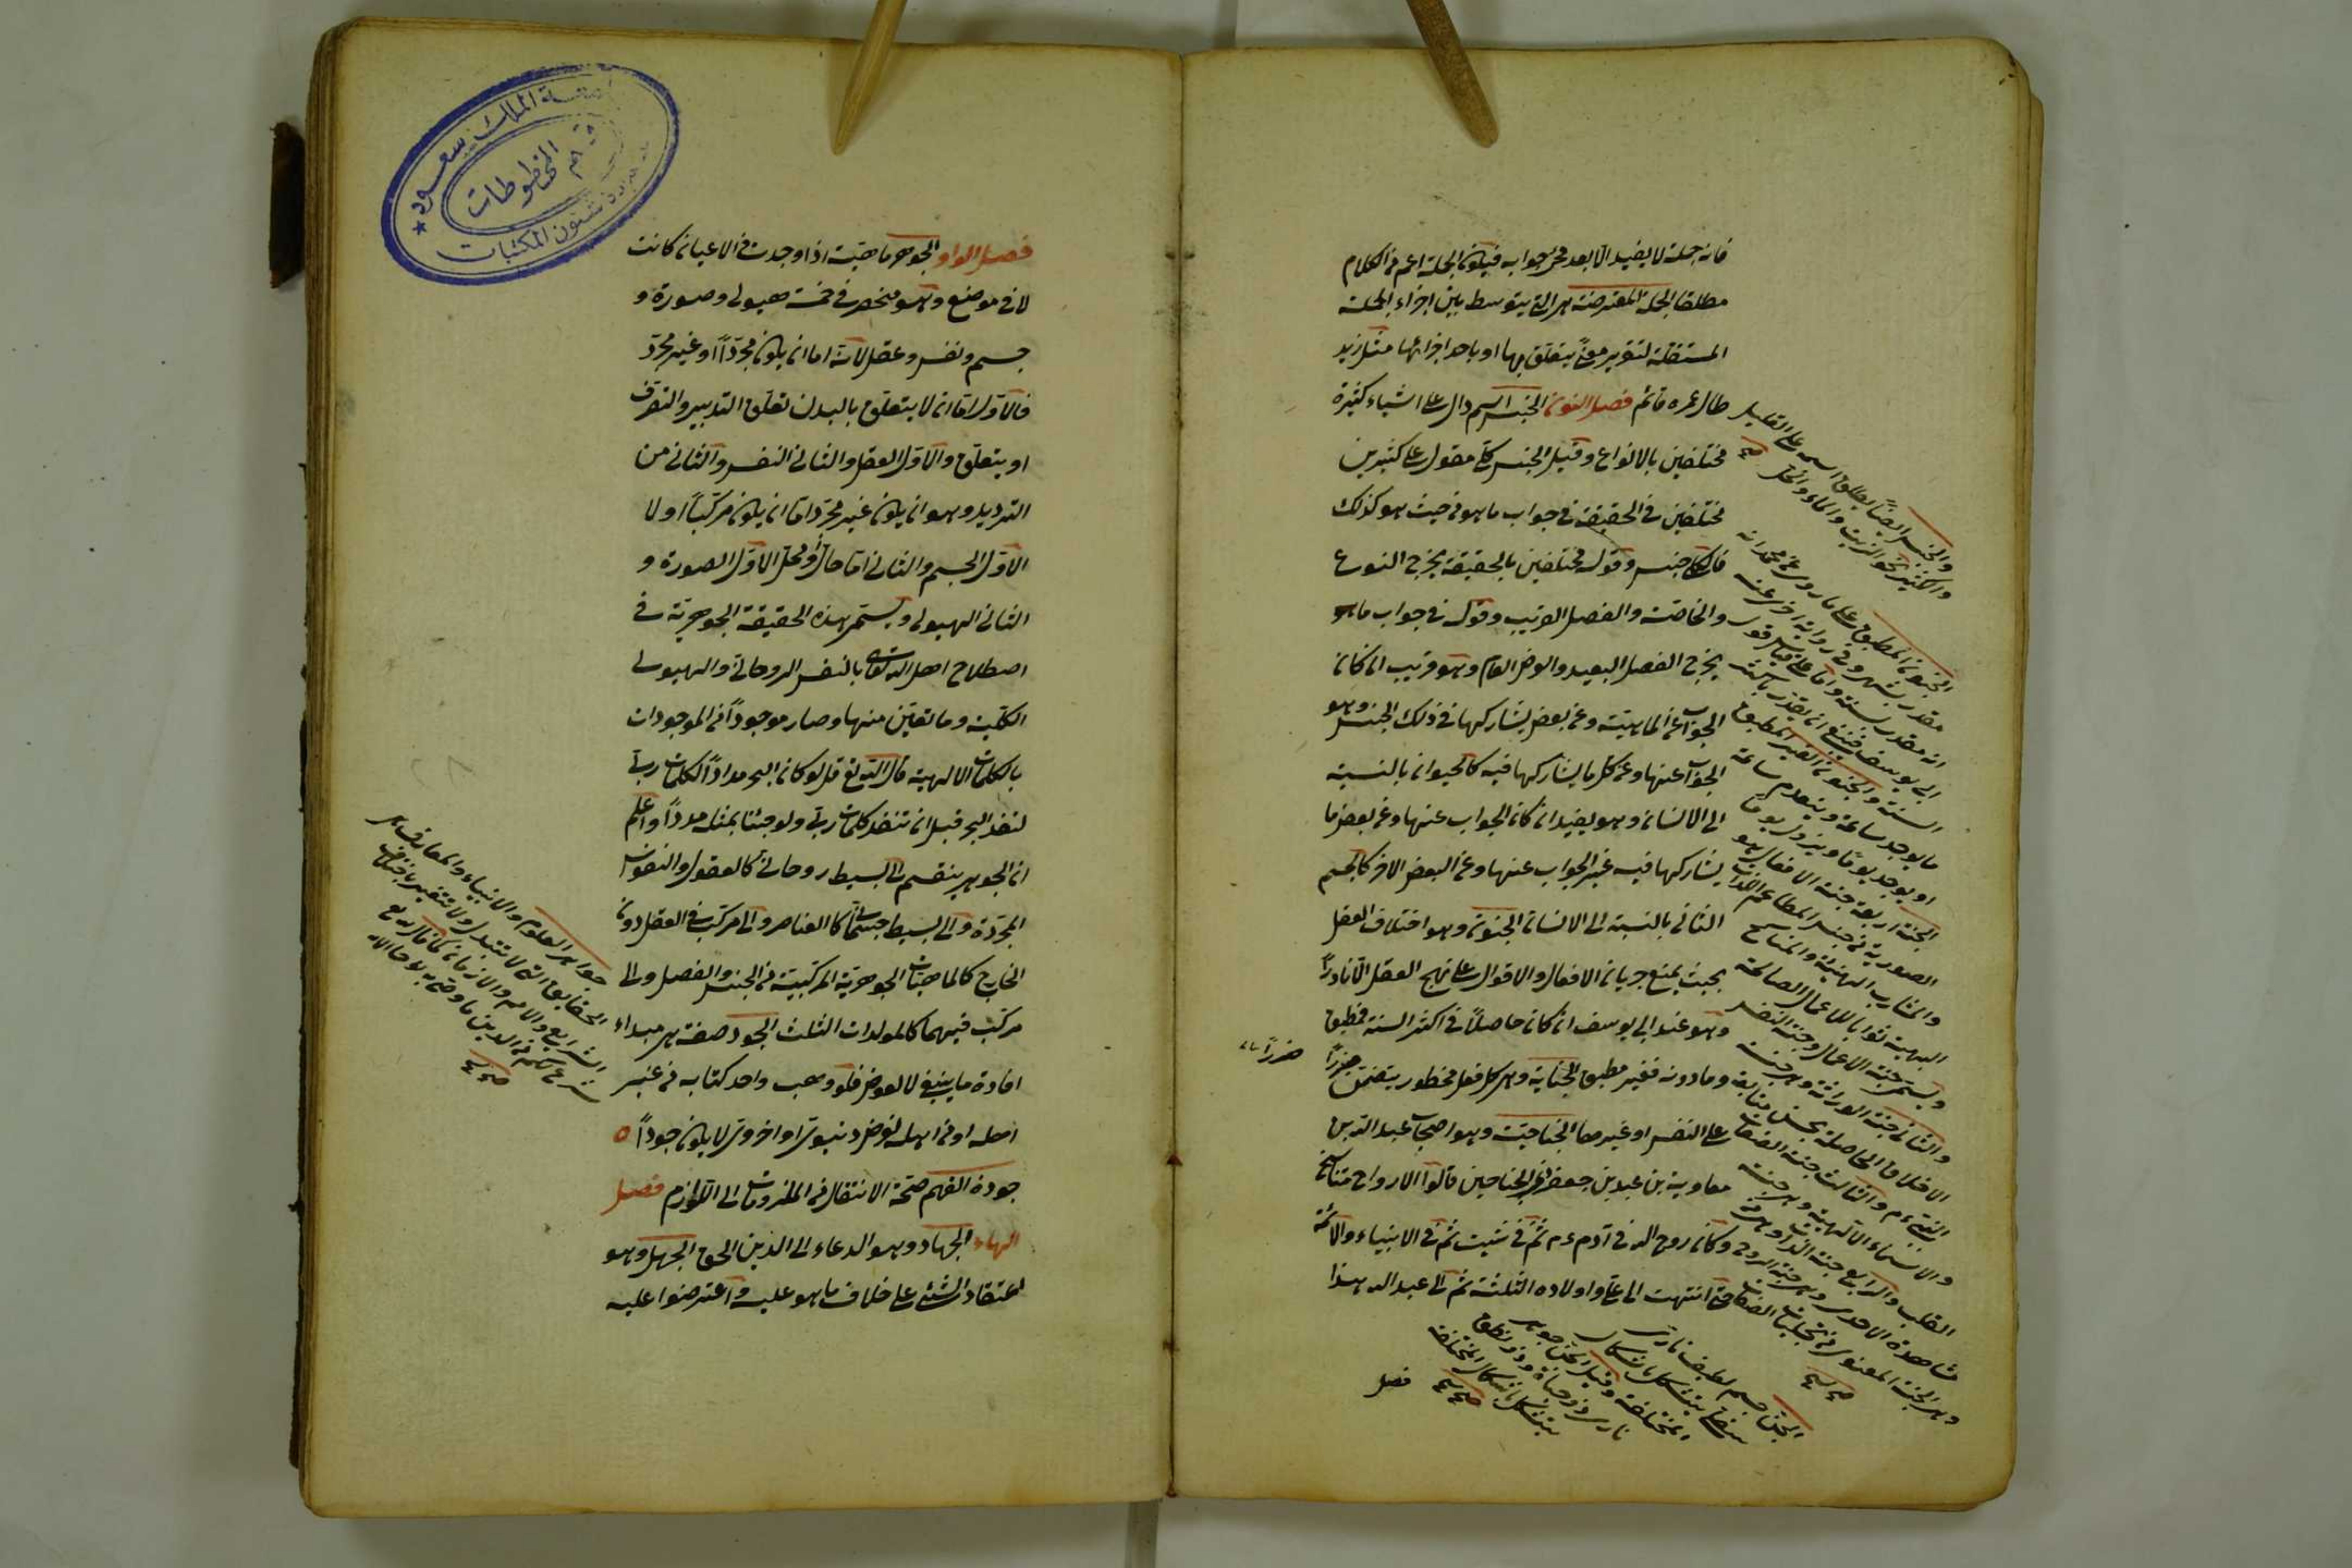 فانه جملة لا يفيد الا بعد مجئ جوابه فيكون الجملة اعم من الكلام
مطلقا الجملة المعترضة هى التى يتوسط بين اجزاء الجملة
المستقلة لتقرير معنى يتعلق بها او باحد اجزائها مثل زيد
طال عمره قائم فصل النون الجنس اسم دال على اشياء كثيرة
مختلفين بالانواع وقيل الجنس كلى مقول على كثيرين
مختلفين فى الحقيقة فى جواب ما هو من حيث هو كذلك
فالكلى جنس وقوله مختلفين بالحقيقة يخرج النوع
والخاصة والفصل القريب وقوله فى جواب ما هو
يخرج الفصل البعيد والعرض العام وهو قريب ان كان
الجواب عن الماهية وعن بعض يشاركها فى ذلك الجنس وهو
الجواب عنها وعن كل ما يشاركها فيه كالحيوان بالنسبة
الى الانسان وهو بعيد ان كان الجواب عنها وعن بعض ما
يشاركها فيه غير الجواب عنها وعن البعض الاخر كالجسم
النامى بالنسبة الى الانسان الجنون وهو اختلاف العقل
بحيث يمنع جريان الافعال والاقوال على نهج العقل الا نادرا
وهو عند ابى يوسف ان كان حاصلا فى اكثر السنة فمطبق
وما دونه فغير مطبق الجناية وهى كل فعل محظور يتضمن ضررا
على النفس او غيرها الجناحية وهو اصحاب عبد الله بن
معاوية بن عبد بن جعفر ذى الجناحين قالوا الارواح تتناسخ
وكان روح الله فى آدم ءم ثم فى شيث ثم فى الانبياء والائمة
حتى انتهت الى على واولاده الثلثة ثم الى عبد الله هذا
فصل
والجنس ايضا يطلق اسمه على القليل
والكثير نحو الزيت والماء والخل صح
الجنون المطبق على ما روى عن محمد انه
مقدر بشهر وفى رواية اخرى عنه
انه مقدر بسنة واما على قياس قول
ابى يوسف فينبغى ان يقدر باكثر
السنة والجنون الغير المطبق
ما يوجد ساعة وينعدم ساعة
او يوجد يوما ويزول يوما
الجنة اربعة جنة الافعال هو
الصورية من جنس المطاعم اللذات
والمشارب الهنيئة والمناكح
البهية ثوابا للاعمال الصالحة
ويسمى جنة الاعمال وجنة النفس
والثانى جنة الوراثة وهى جنة
الاخلاق الحاصلة بحسن متابعة
النبى ءم والثالث جنة الصفات
والاسماء الالهية وهى جنة
القلب والرابع جنة الذات وهى
مشاهدة الاحدى وهى جنة الروح
وهى الجنة المعنوى من تجليات الصفات
صح
الجن جسم لطيف نارى
يتشكل باشكال
المختلفة وقيل الجن جوهر
نارى ذو حياة وذو نطق
يتشكل باشكال المختلفة
صح
ضررا
فصل الواو الجوهر ماهية اذا وجدت فى الاعيان كانت
لا فى موضع وهو منحصر فى خمسة هيولى وصورة و
جسم ونفس وعقل لانه اما ان يكون مجردا او غير مجرد
فالاول اما ان لا يتعلق بالبدن تعلق التدبير والتصرف
او يتعلق والاول العقل والثانى النفس والثانى من
الترديد وهو ان يكون غير مجرد اما ان يكون مركبا او لا
الاول الجسم والثانى اما حال او محل الاول الصورة و
الثانى الهيولى ويسمى هذه الحقيقة الجوهرية فى
اصطلاح اهل الله تعالى بالنفس الروحانى والهيولى
الكلية وما تعين منها وصار موجودا من الموجودات
بالكلمات الالهية قال الله تع قل لو كان البحر مدادا لكلمات ربى
لنفد البحر قبل ان تنفد كلمات ربى ولو جئنا بمثله مددا واعلم
ان الجوهر ينقسم الى بسيط روحانى كالعقول والنفوس
المجردة والى بسيط جسمانى كالعناصر والى مركب فى العقل دون
الخارج كالماهيات الجوهرية المركبة من الجنس والفصل والى
مركب فيهما كالمولدات الثلث الجود صفة هى مبداء
افادة ما ينبغى لا لعوض فلو وهب واحد كتابه من غير
اهله او من اهله لغرض دنيوى او اخروى لا يكون جودا
جودة الفهم صحة الانتقال من الملزومات الى اللوازم فصل
الهاء الجهاد وهو الدعاء الى الدين الحق الجهل وهو
اعتقاد الشئ على خلاف ما هو عليه واعترضوا عليه
جواهر العلوم والانبياء والمعارف هى
الحقايق التى لا تتبدل ولا تتغير باختلاف
الشرايع والامم والازمان كما قال تع
شرع لكم من الدين ما وصى به نوحا الآية
صح
المخطوطات
شئون المكتبات
الملك سعود